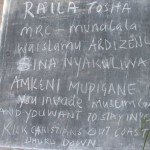 RAILA TOSHA
MRC - MUNGALA
WAISLAMU
SINA NYAKULIWA
AMKENI MUPIGANE
you invade muslim
AND YOU WANT TO STAY IN
KICK CHRISTIANS OUT COAST
UHURU DOWN